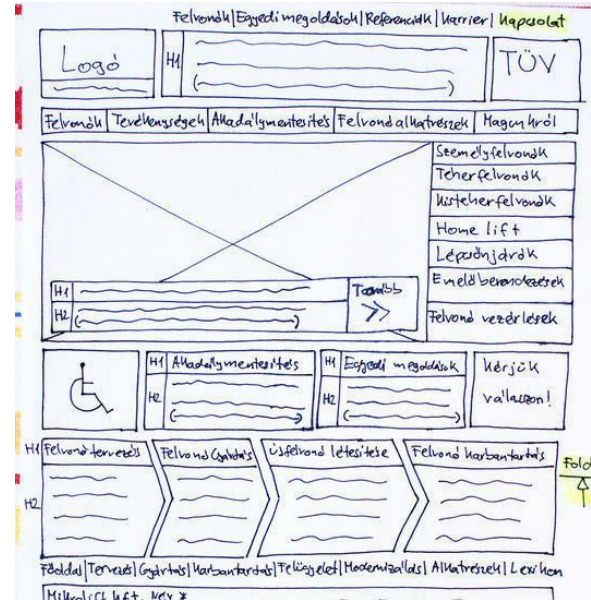 Felvonók|Egyedi megoldások|Referenciák|Karrier|Kapcsolat
Logó
H1
TÜV
Felvonók Tevékenységek Akadálymentesítés Felvonó alkatrészek Magunkról
Személyfelvonók
Teherfelvonók
Kisteherfelvonók
Home lift
Lépcsőnjárók
Emelőberendezések
Felvonó vezérlések
H1
H2
Tovább
H1 Akadálymentesítés
H2
H1 Egyedi megoldások
H2
Kérjük
válasszon!
H1 Felvonó tervezés Felvonó Gyártás Új felvonó létesítése Felvonó Karbantartás
H2
Fold
Főoldal|Tervezés|Gyártás|Karbantartás|Felügyelet|Modernizálás|Alkatrészek|Lexikon